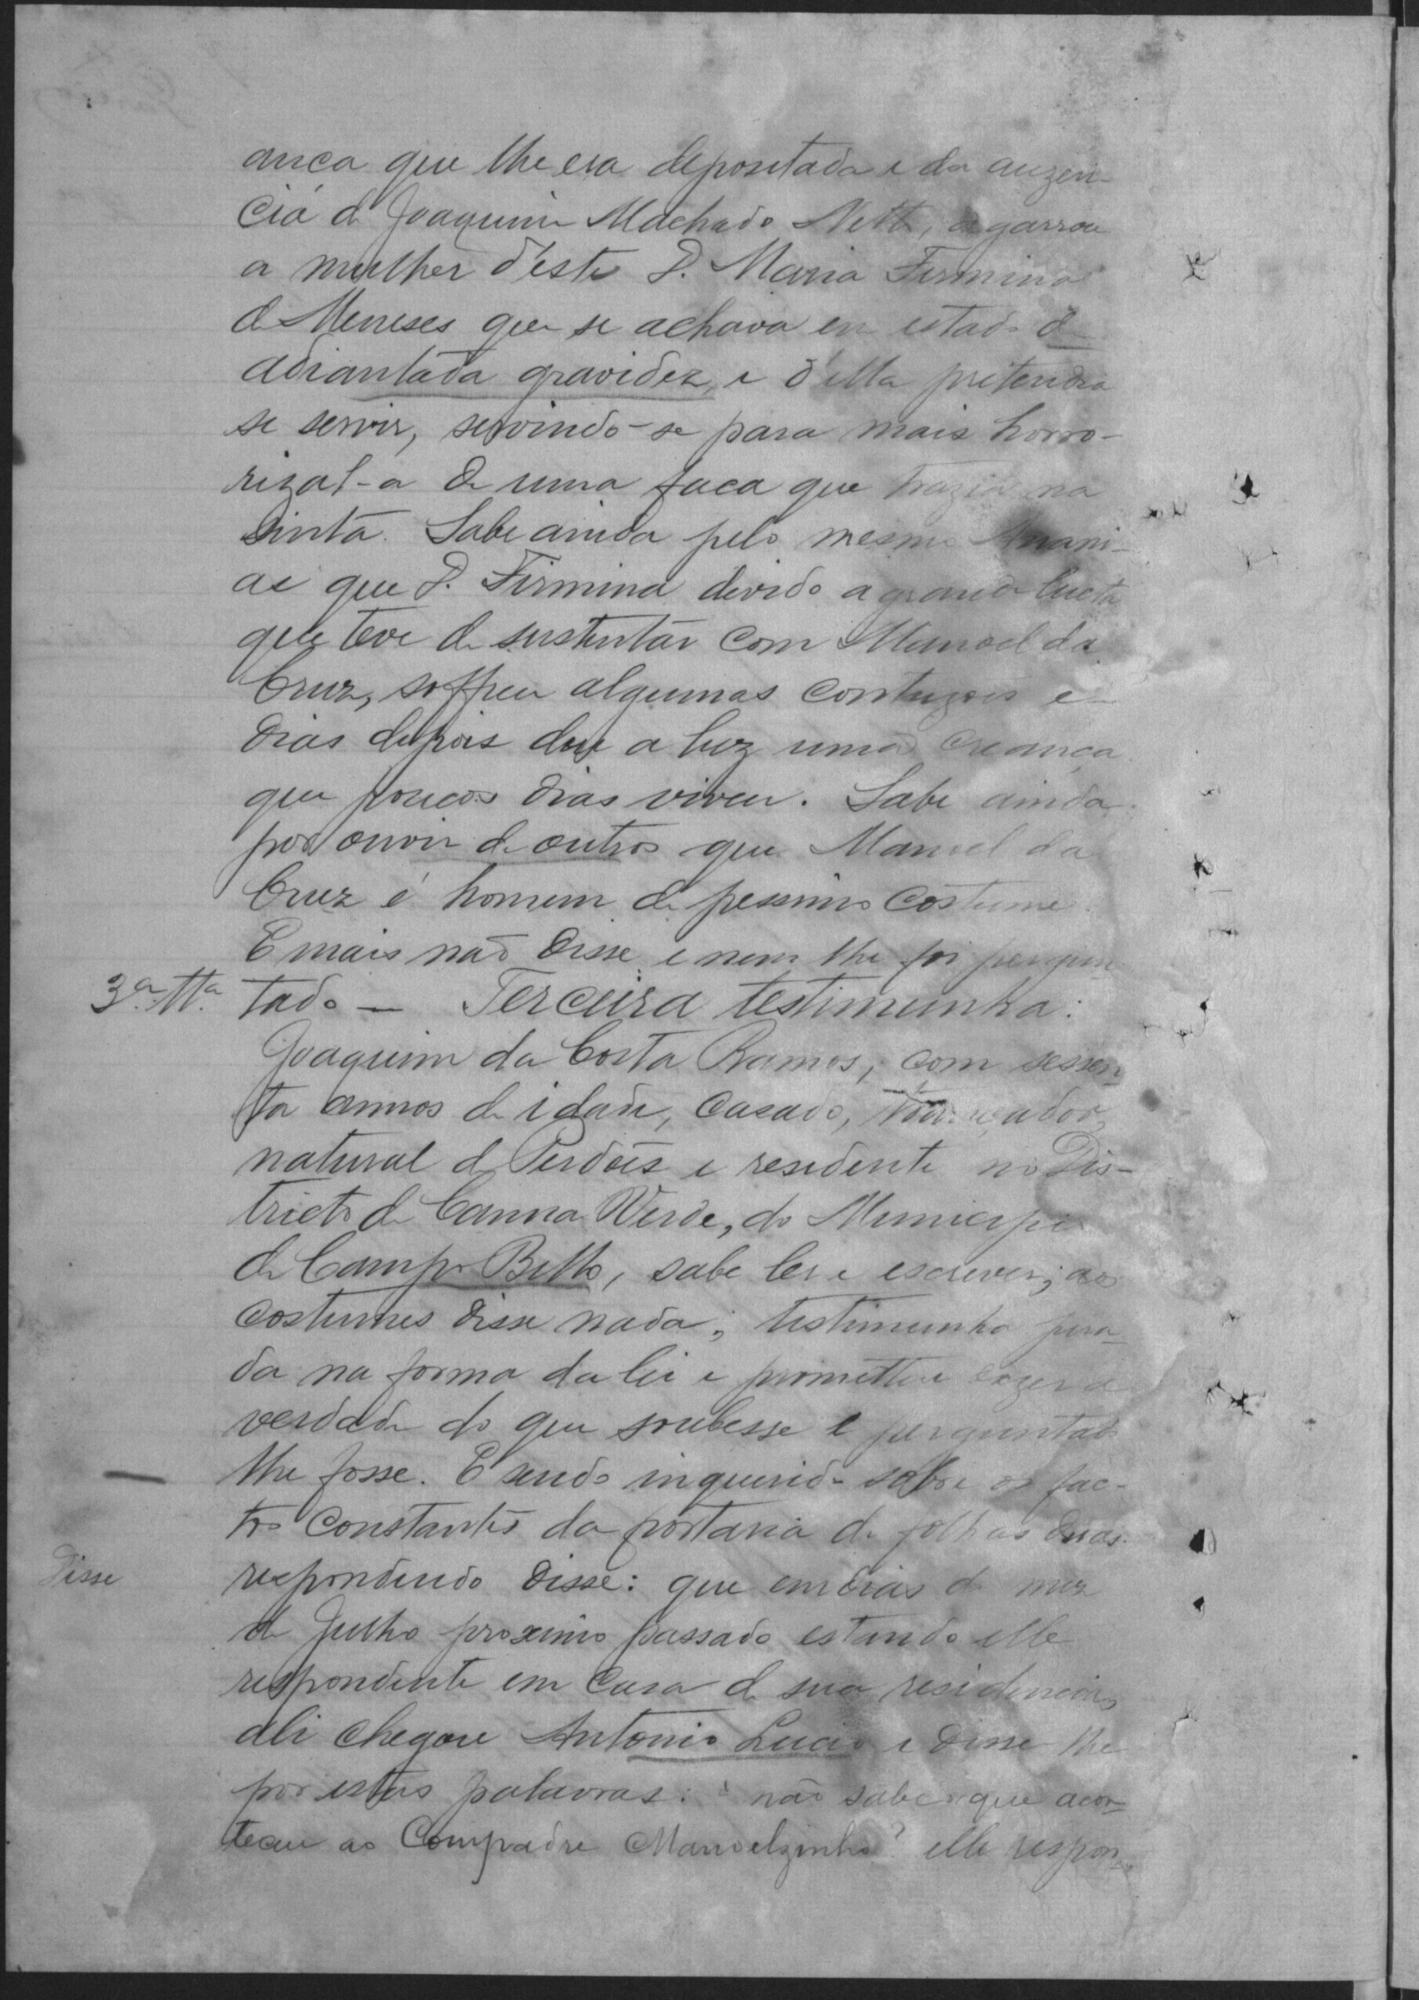 ança que lhe era depositada e da auzen-
cia de Joaquim Machado Netto, agarrou
a mulher d'este D. Maria Firmina
de Meneses que se achava em estado de
adiantada gravidez, e d'ella pretendia
se servir, servindo-se para mais horro-
rizal-a de uma faca que trazia na
cinta. Sabe ainda pelo mesmo Anani-
as que D. Firmina devido a grande lucta
que teve de sustentar com Manoel da
Cruz, soffreu algumas contuzões e
dias depois deu a luz uma creança
que poucos dias viveu. Sabe ainda
por ouvir de outros que Manoel da
Cruz é homem de pessimo costume.
E mais não disse e nem lhe foi pergun
3ª Ttª. tado — Terceira testimunha:
Joaquim da Costa Ramos, com sessen-
ta annos de idade, casado,
natural de Perdões e residente no Dis-
tricto de Canna Verde, do Municipio
de Campo Bello, sabe ler e escrever; aos
costumes disse nada; testimunha jura-
da na forma da lei e prometteu dizer a
verdade do que soubesse e perguntado
lhe fosse. E sendo inquerido sobre os fac-
tos constantes da portaria de folhas duas
Disse respondendo disse: que em dias do mez
de Julho proximo passado estando elle
respondente em casa de sua residencia,
ali chegou Antonio Lucio e disse lhe
por estas palavras: não sabe o que acon-
teceu ao Compadre Manoelzinho? elle respon-